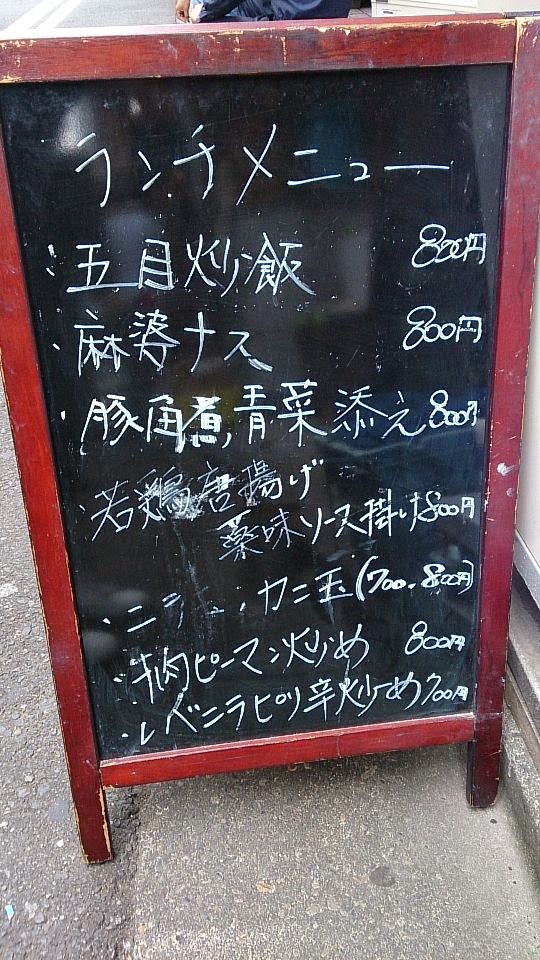 ランチメニュー
・五目炒飯 800円
・麻婆ナス 800円
・豚角煮青菜添え 800円
・若鶏唐揚げ
薬味ソース掛け 800円
・カニ玉(700.800円)
・牛肉ピーマン炒め 800円
・レバニラピリ辛炒め 700円